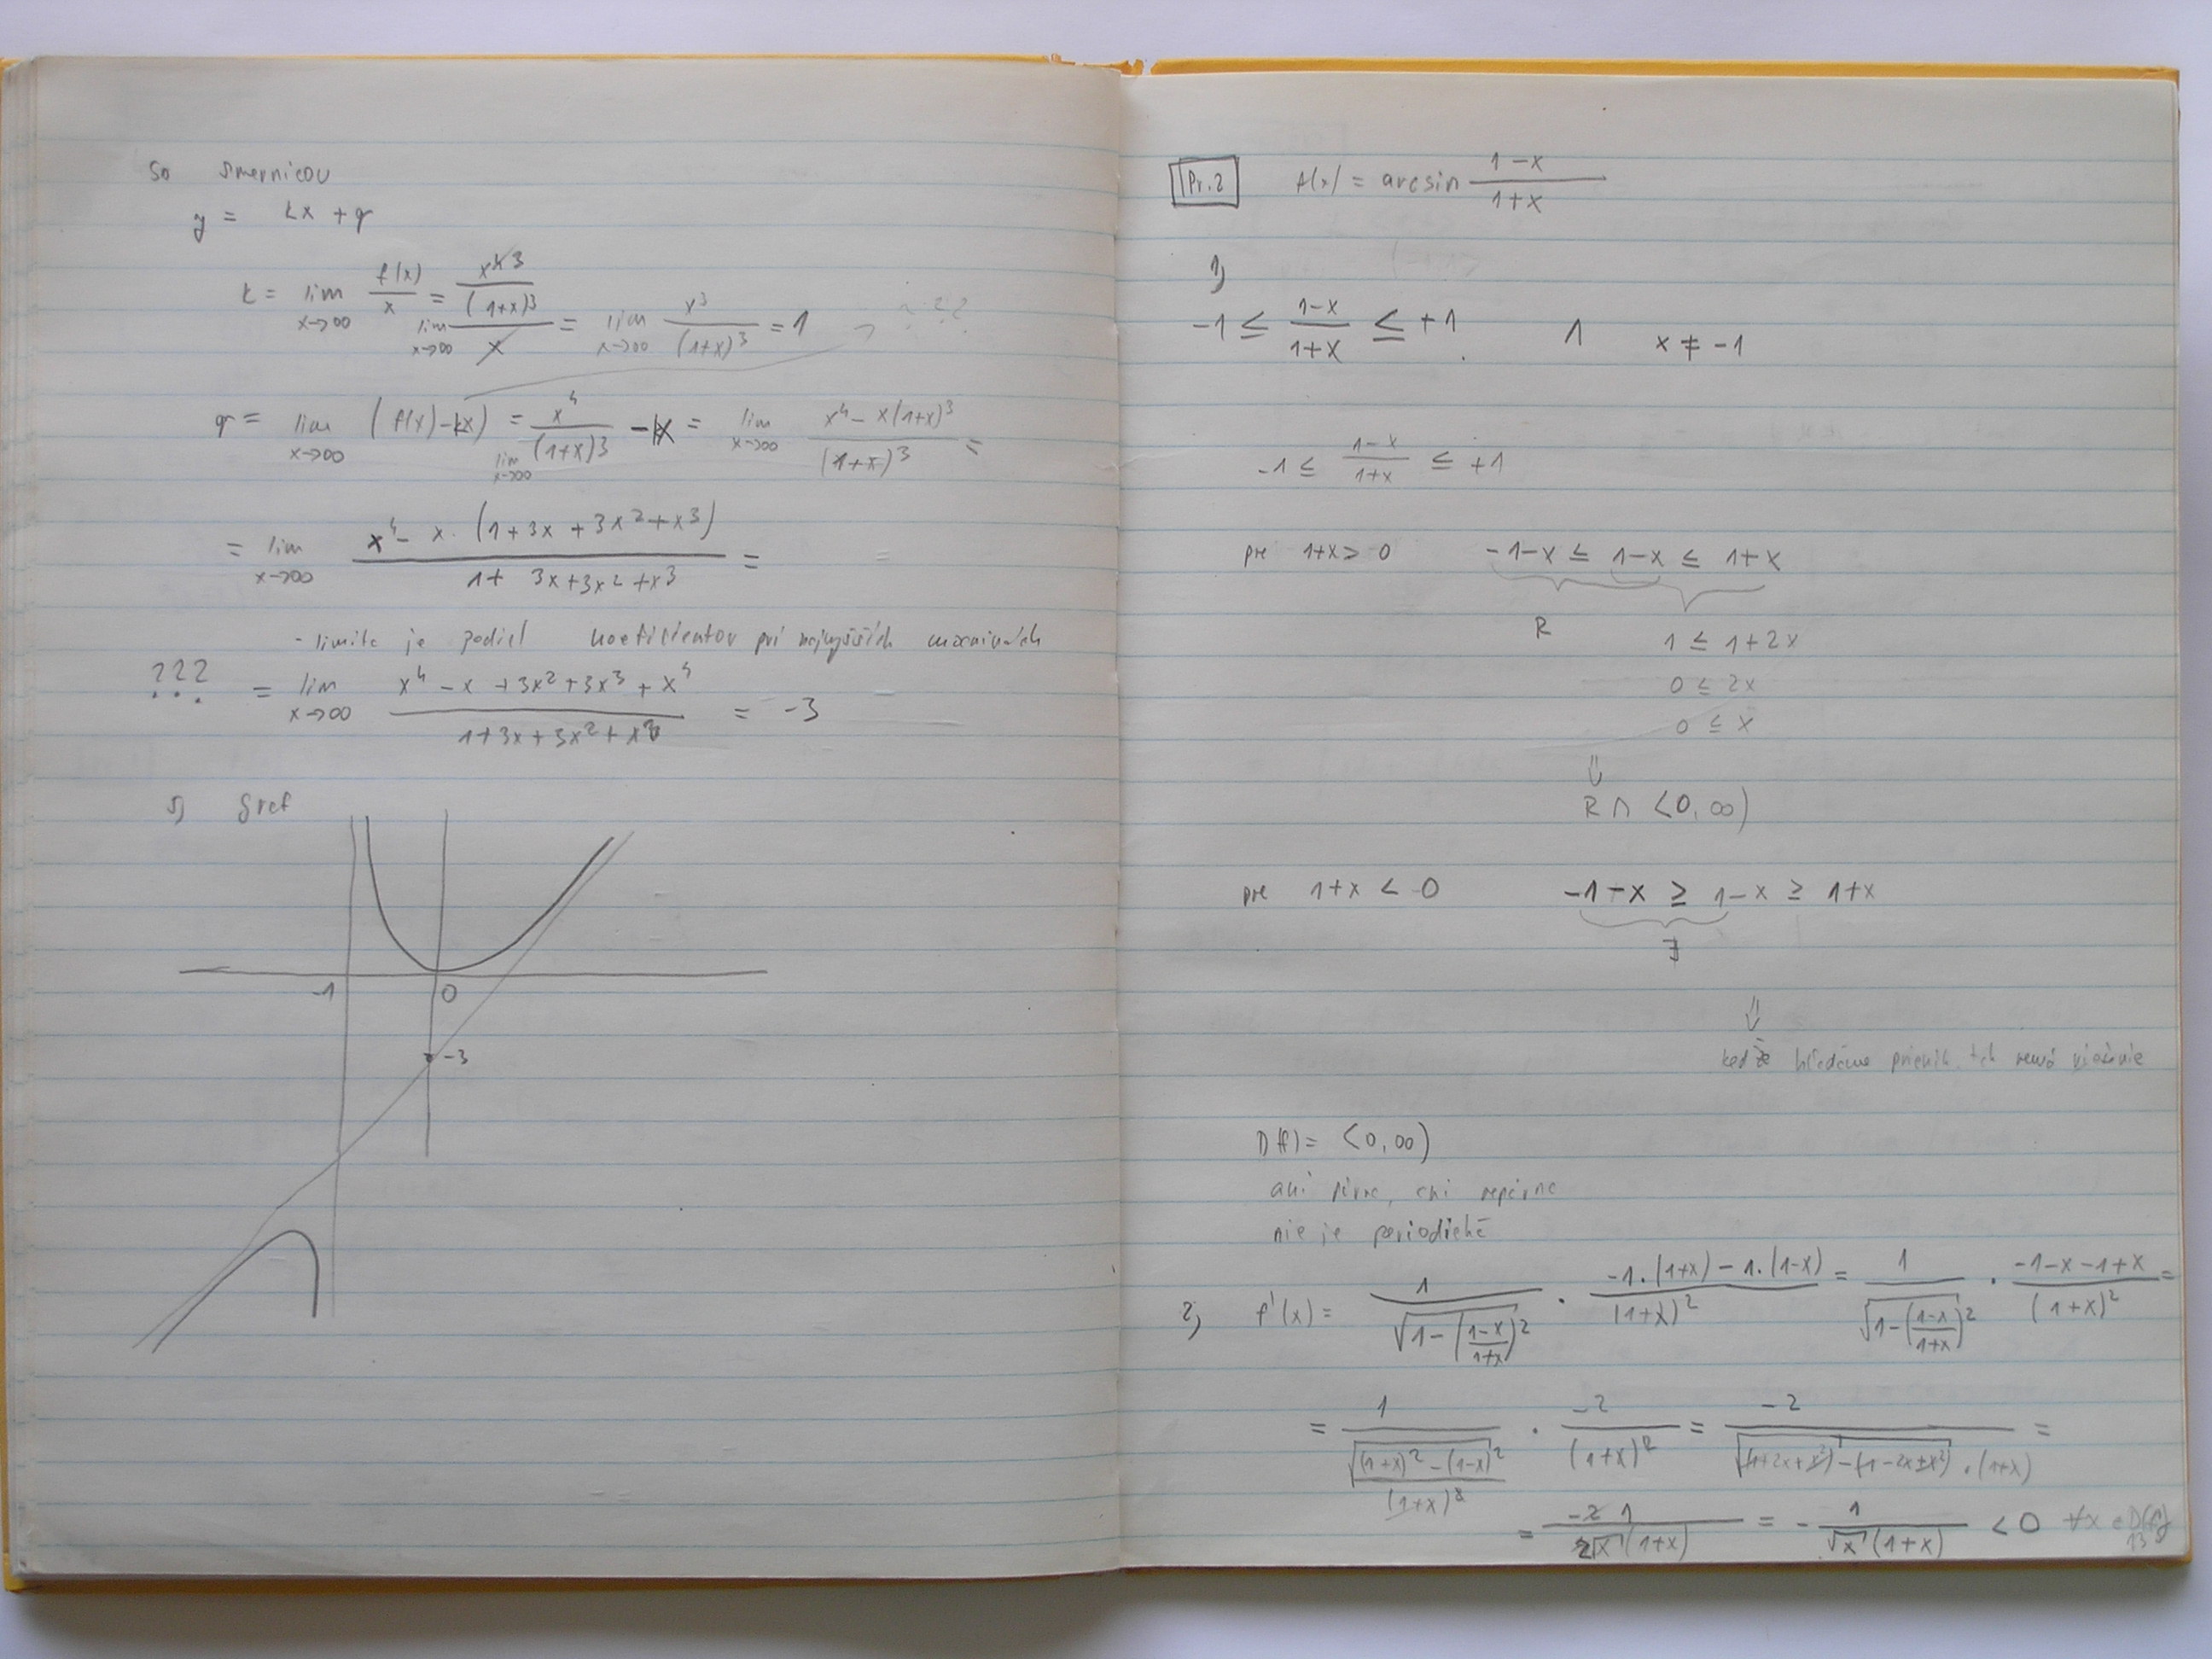 so smernicou
y = kx + q
k = lim x→∞ f(x)/x = lim x→∞ (x⁴ 3/(1+x)³)/x = lim x→∞ x³/(1+x)³ = 1 → ???
q = lim x→∞ (f(x)-kx) = lim x→∞ x⁴/(1+x)³ - kx = lim x→∞ (x⁴ - x(1+x)³)/(1+x)³ =
= lim x→∞ (x⁴ - x·(1+3x+3x²+x³))/(1+3x+3x²+x³) = =
- limita je podiel koeficientov pri najvyšších mocninách
??? = lim x→∞ (x⁴ - x + 3x² + 3x³ + x⁴)/(1+3x+3x²+x³) = -3
5) Graf
-1 0
-3
Pr.2 f(x) = arcsin (1-x)/(1+x)
1)
-1 ≤ (1-x)/(1+x) ≤ +1 ∧ x ≠ -1
-1 ≤ (1-x)/(1+x) ≤ +1
pre 1+x > 0 -1-x ≤ 1-x ≤ 1+x
R 1 ≤ 1+2x
0 ≤ 2x
0 ≤ x
⇓
R ∩ <0,∞)
pre 1+x < 0 -1-x ≥ 1-x ≥ 1+x
∄
⇓
keďže hľadáme prienik, tak nemá riešenie
D(f) = <0,∞)
ani párna, ani nepárna
nie je periodická
2) f'(x) = 1/√(1-((1-x)/(1+x))²) · (-1·(1+x) - 1·(1-x))/(1+x)² = 1/√(1-((1-x)/(1+x))²) · (-1-x-1+x)/(1+x)² =
= 1/√(((1+x)²-(1-x)²)/(1+x)²) · -2/(1+x)² = -2/(√((1+2x+x²)-(1-2x+x²)) · (1+x)) =
= -2 1/(2√x (1+x)) = - 1/(√x (1+x)) < 0 ∀x ∈ D(f)
13